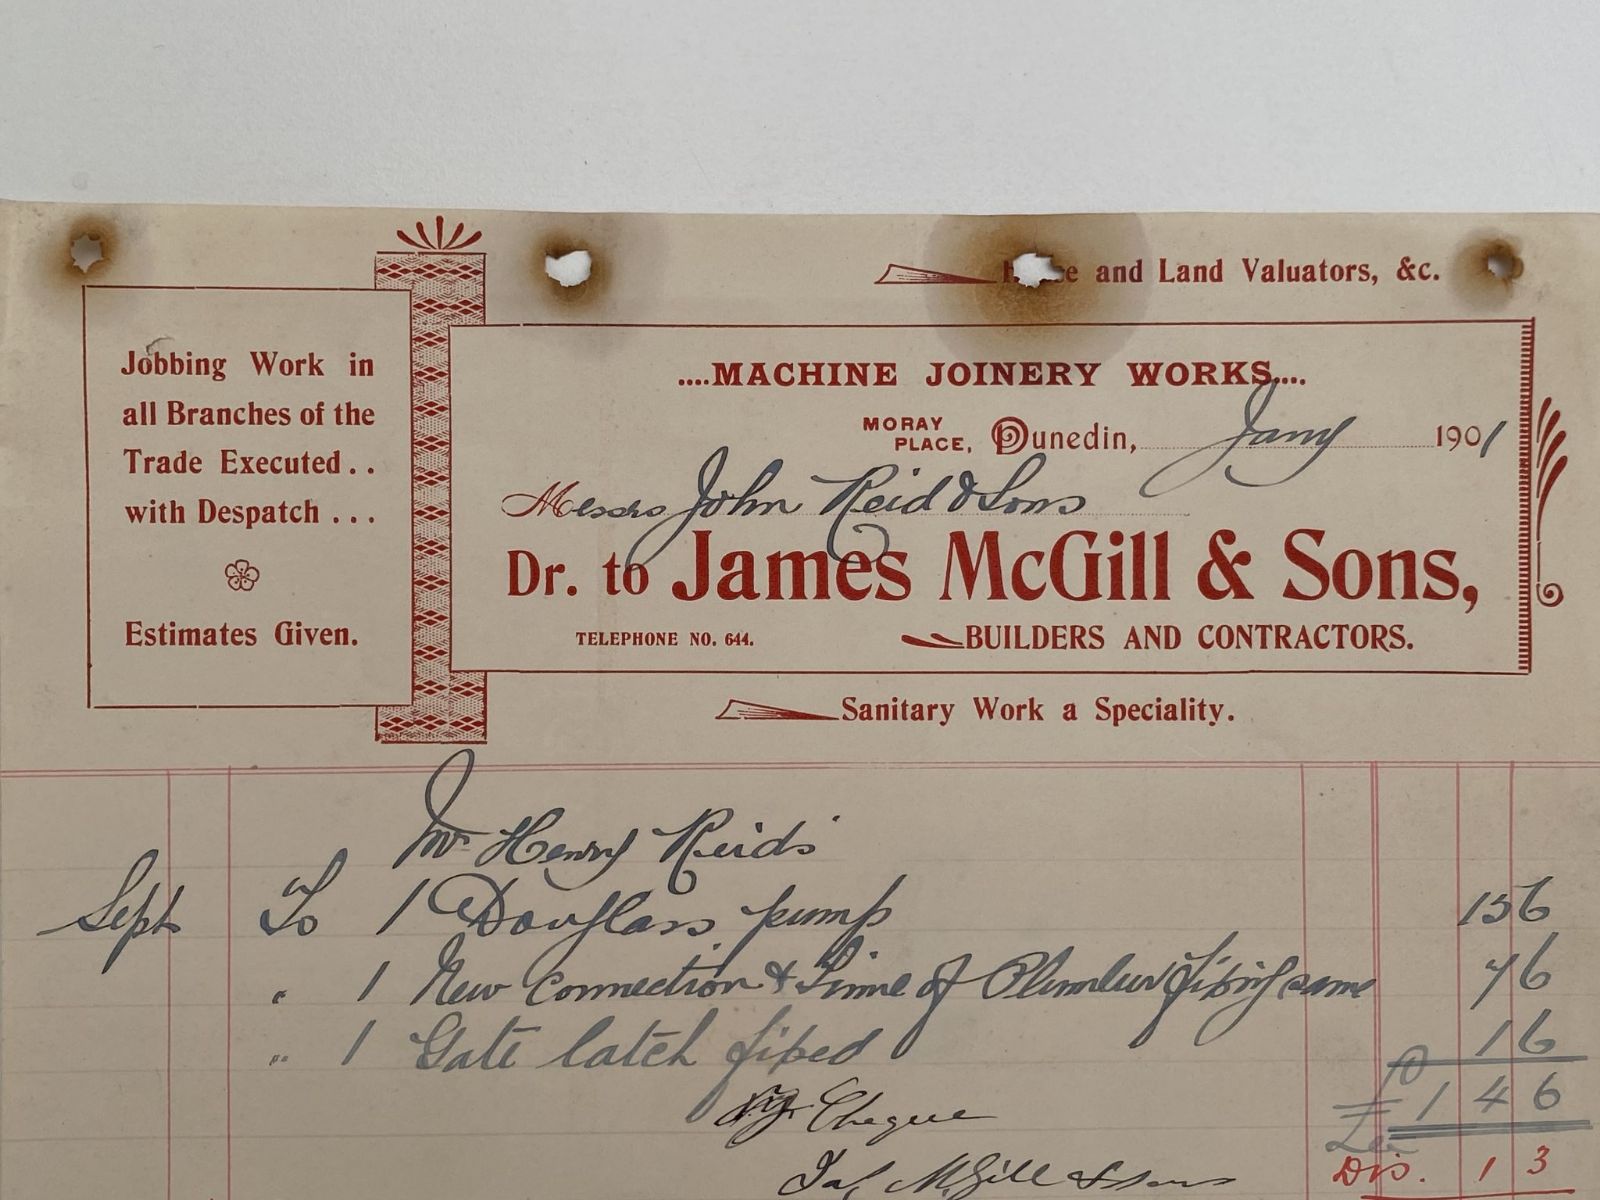 and Land Valuators, &c.
Jobbing Work in
all Branches of the
Trade Executed..
with Despatch...
Estimates Given.
....MACHINE JOINERY WORKS....
MORAY PLACE, Dunedin, Jany 1901
Messrs John Reid & Sons
Dr. to James McGill & Sons,
TELEPHONE NO. 644. BUILDERS AND CONTRACTORS.
Sanitary Work a Speciality.
Mr Henry Reids
Sept To 1 Douglass pump 15 6
" 1 New Connection & Time of Plumber fixing same 7 6
" 1 Gate latch fixed 1 6
£ 1 4 6
By Cheque
Dis. 1 3
Jas McGill & Sons